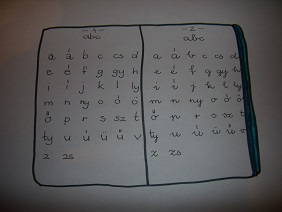 -1-
abc
a á b c cs d
e é f g gy h
i í j k l ly
m n ny o ó ö
ő p r s sz t
ty u ú ü ű v
z zs
-2-
abc
a á b c cs d
e é f g gy h
i í j k l ly
m n ny o ó ö
ő p r s sz t
ty u ú ü ű v
z zs